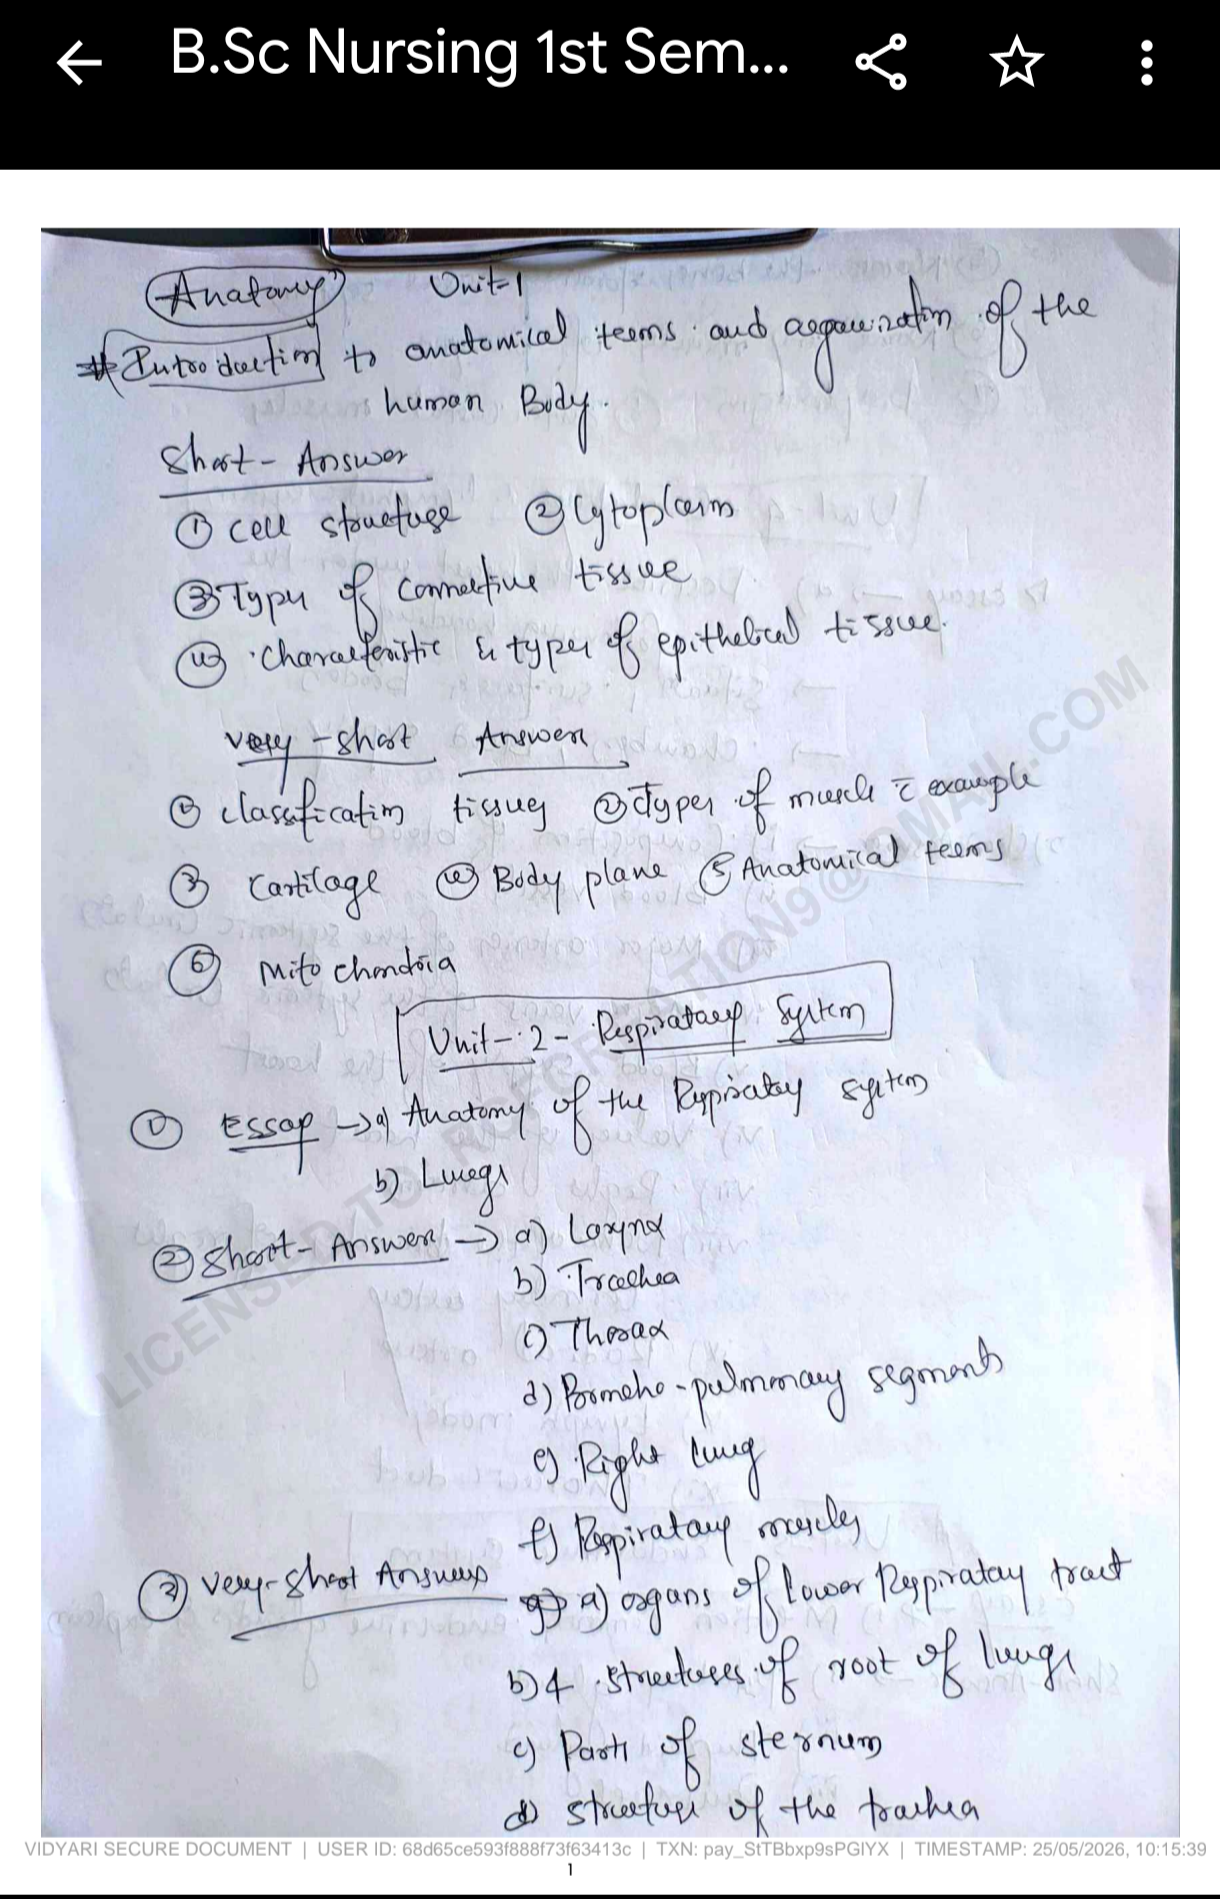 B.Sc Nursing 1st Sem...
Anatomy Unit-1
# Introduction to anatomical terms and organization of the
human Body.
Short - Answer
① cell structure ② Cytoplasm
③ Types of connective tissue
④ characteristic & types of epithelical tissue.
very - short Answer
① classification tissues ② Types of muscle c̄ example
③ Cartilage ④ Body plane ⑤ Anatomical terms
⑥ Mitochondria
Unit - 2 - Respiratory System
① Essay → a) Anatomy of the Respiratory system
b) Lungs
② Short - Answer → a) Larynx
b) Trachea
c) Thorax
d) Broncho - pulmonary segments
e) Right lung
f) Respiratory muscles
③ Very - Short Answers a) organs of lower Respiratory tract
b) 4 structures of root of lungs
c) Parts of sternum
d) structure of the trachea
VIDYARI SECURE DOCUMENT | USER ID: 68d65ce593f888f73f63413c | TXN: pay_StTBbxp9sPGIYX | TIMESTAMP: 25/05/2026, 10:15:39
1